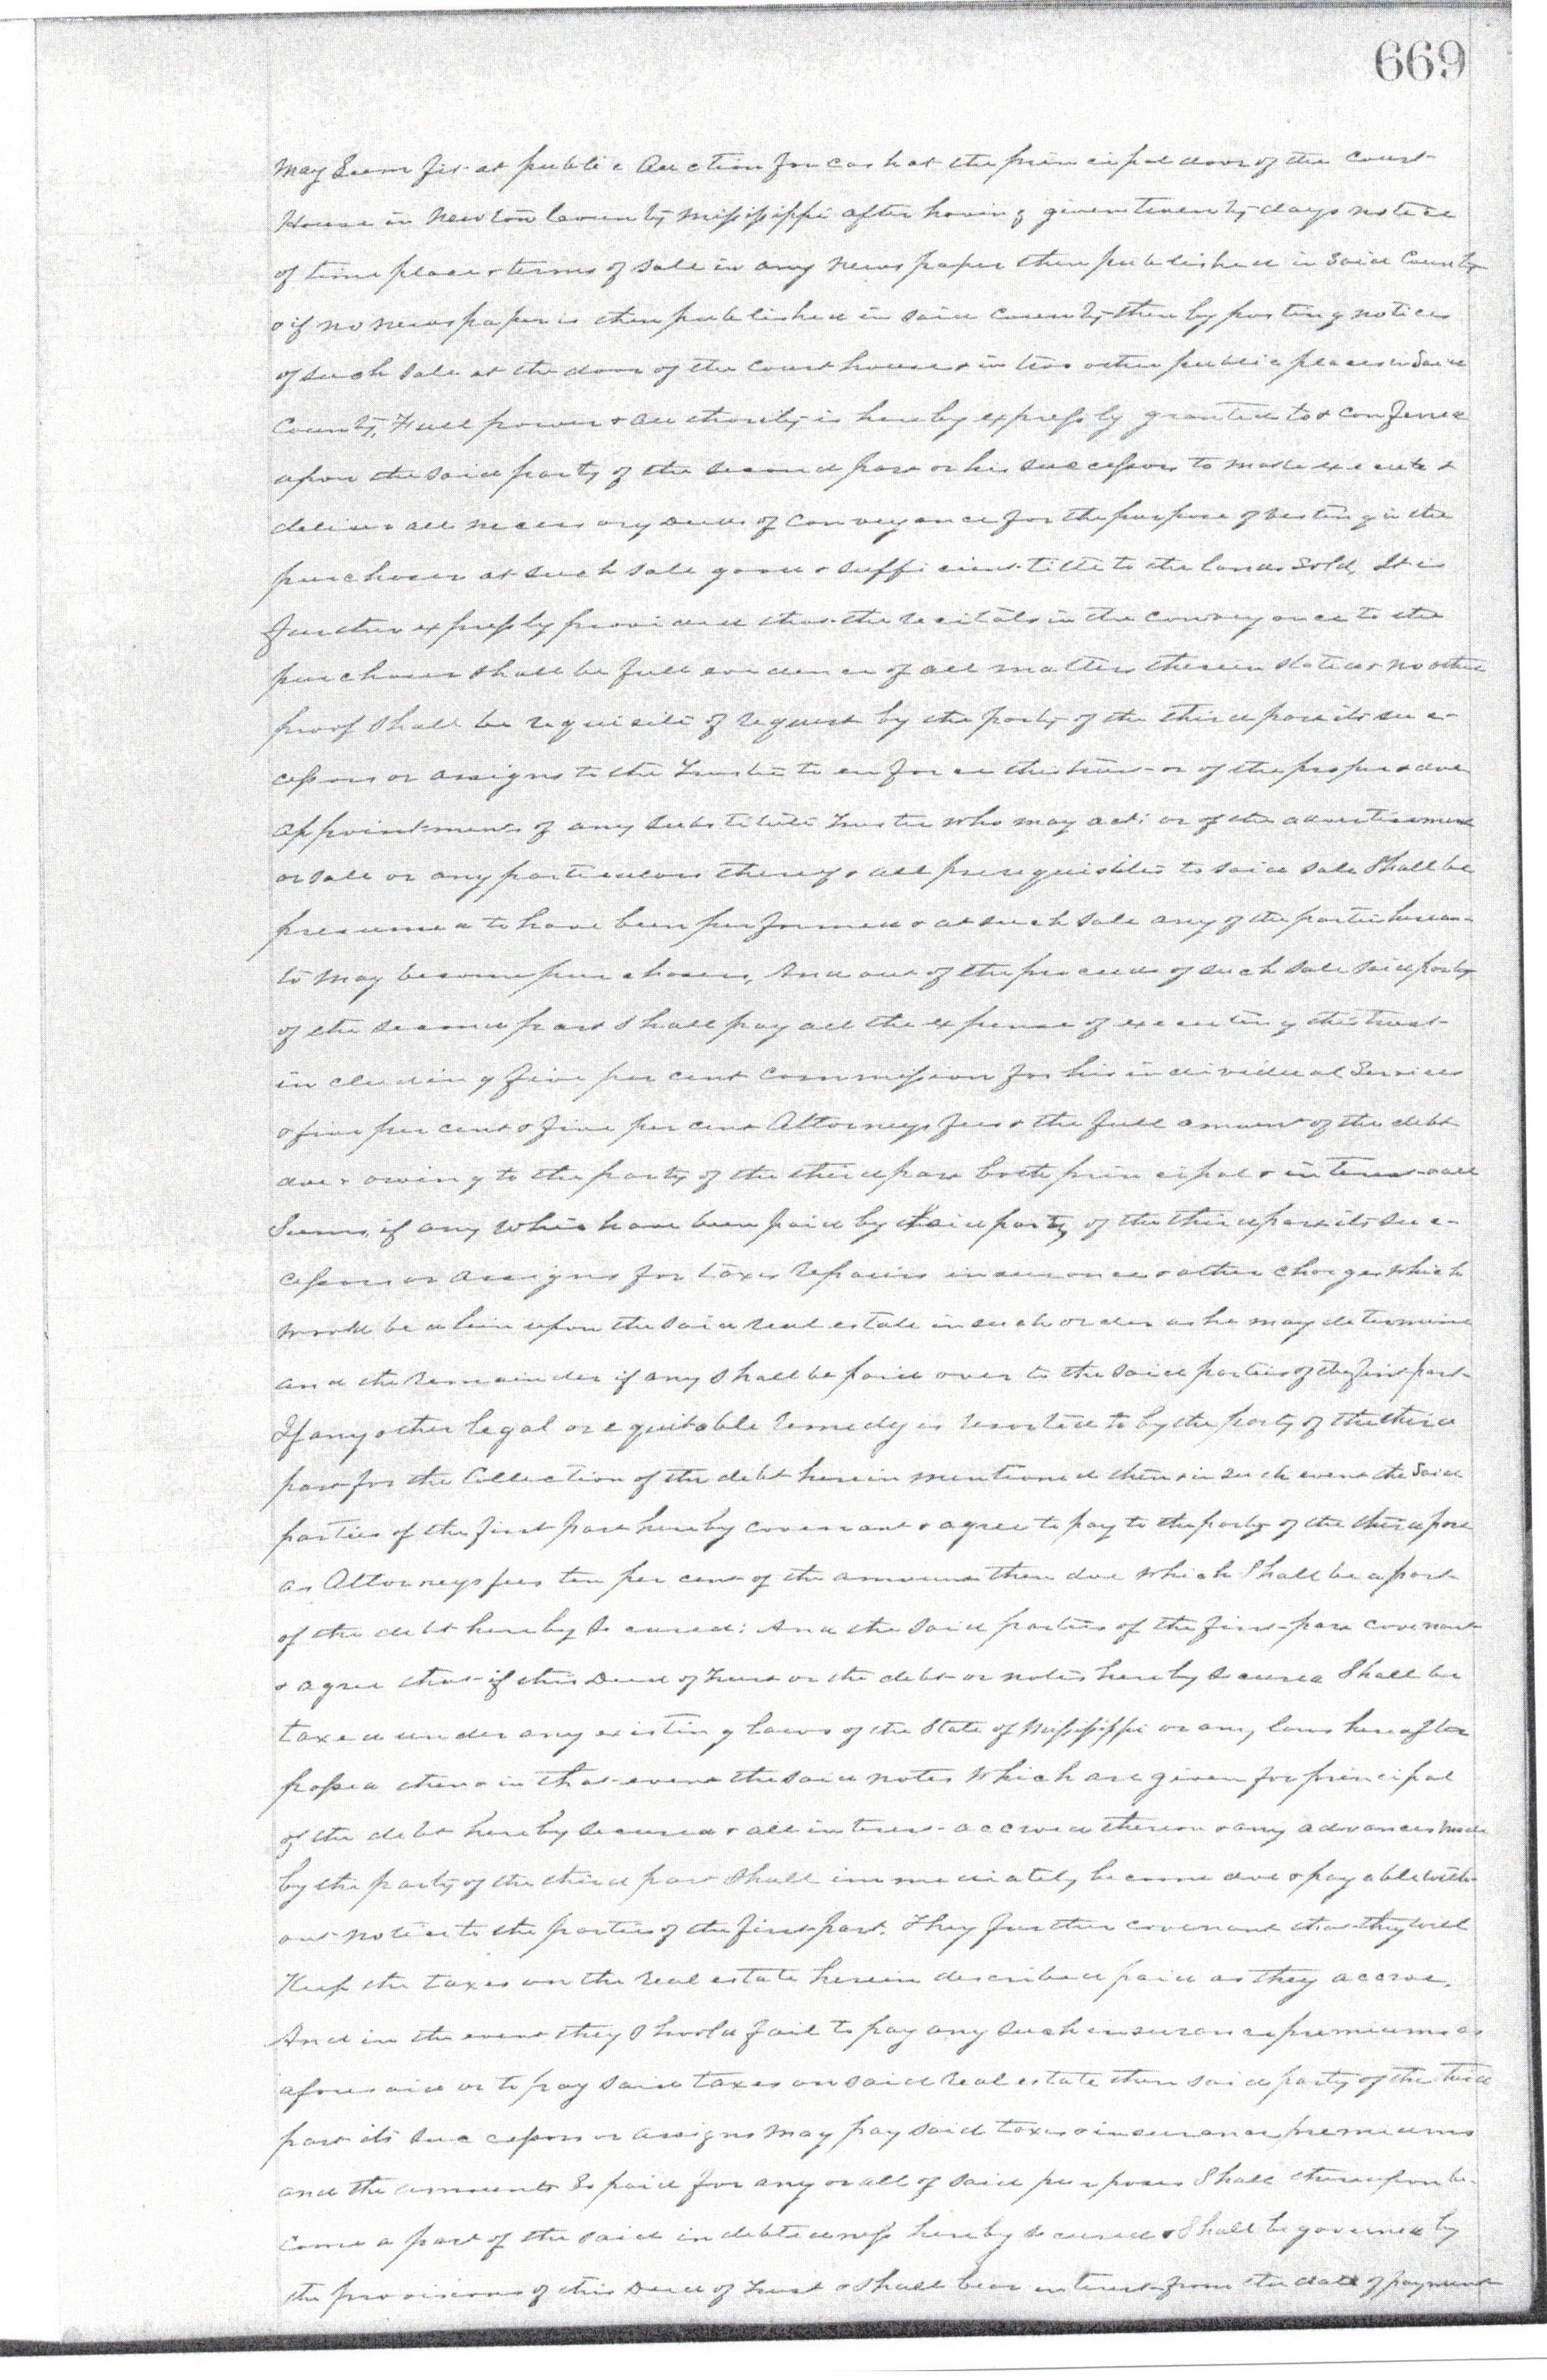 669
May Seem fit at public Auction for cash at the principal door of the Court
House in Newton County Mississippi after having given twenty days notice
of time place & terms of sale in any news paper then published in Said County
& if no newspaper is then published in said County then by posting notices
of such Sale at the door of the Court house & in two other public places in Said
County. Full power & authority is hereby expressly granted to & conferred
upon the said party of the second part or his successors to make execute &
deliver all necessary Deeds of Conveyance for the purpose of vesting in the
purchaser at such sale good & sufficient title to the lands Sold. It is
further expressly provided that the recitals in the conveyance to the
purchaser shall be full evidence of all matters therein stated & no other
proof shall be requisite of request by the party of the third part its suc-
cessors or assigns to the Trustee to enforce this trust or of the proper & due
appointments of any substitute Trustee who may act: or of the advertisement
or sale or any particulars thereof & all prerequisites to said sale Shall be
presumed to have been performed & at such sale any of the parties hereun-
to may become purchasers, And out of the proceeds of such sale said party
of the second part shall pay all the expense of executing this trust
including five per cent commission for his individual Services
& five per cent & five per cent Attorneys fees & the full amount of the debt
due & owing to the party of the third part both principal & interest & all
Sums, if any which have been paid by said party of the third part its suc-
cessors or assigns for taxes repairs insurance & other charges which
would be a lien upon the said real estate in such order as he may determine
and the remainder if any shall be paid over to the said parties of the first part
If any other legal or equitable remedy is resorted to by the party of the third
part for the Collection of the debt herein mentioned then & in such event the Said
parties of the first part hereby covenant & agree to pay to the party of the third part
as Attorneys fees ten per cent of the amount then due which Shall be a part
of the debt hereby secured: And the Said parties of the first part covenant
& agree that if this Deed of Trust or the debt or notes hereby secured Shall be
taxed under any existing laws of the State of Mississippi or any laws hereafter
passed then & in that event the said notes which are given for principal
of the debt hereby secured & all interest accrued thereon & any advances made
by the party of the third part Shall immediately become due & payable with-
out notice to the parties of the first part. They further covenant that they will
Keep the taxes on the real estate herein described paid as they accrue.
And in the event they should fail to pay any such insurance premiums as
aforesaid or to pay said taxes on said real estate then said party of the third
part its successors or assigns may pay said taxes & insurance premiums
and the amounts So paid for any or all of said purposes Shall thereupon be-
come a part of the said indebtedness hereby secured & Shall be governed by
the provisions of this Deed of Trust & shall bear interest from the date of payment